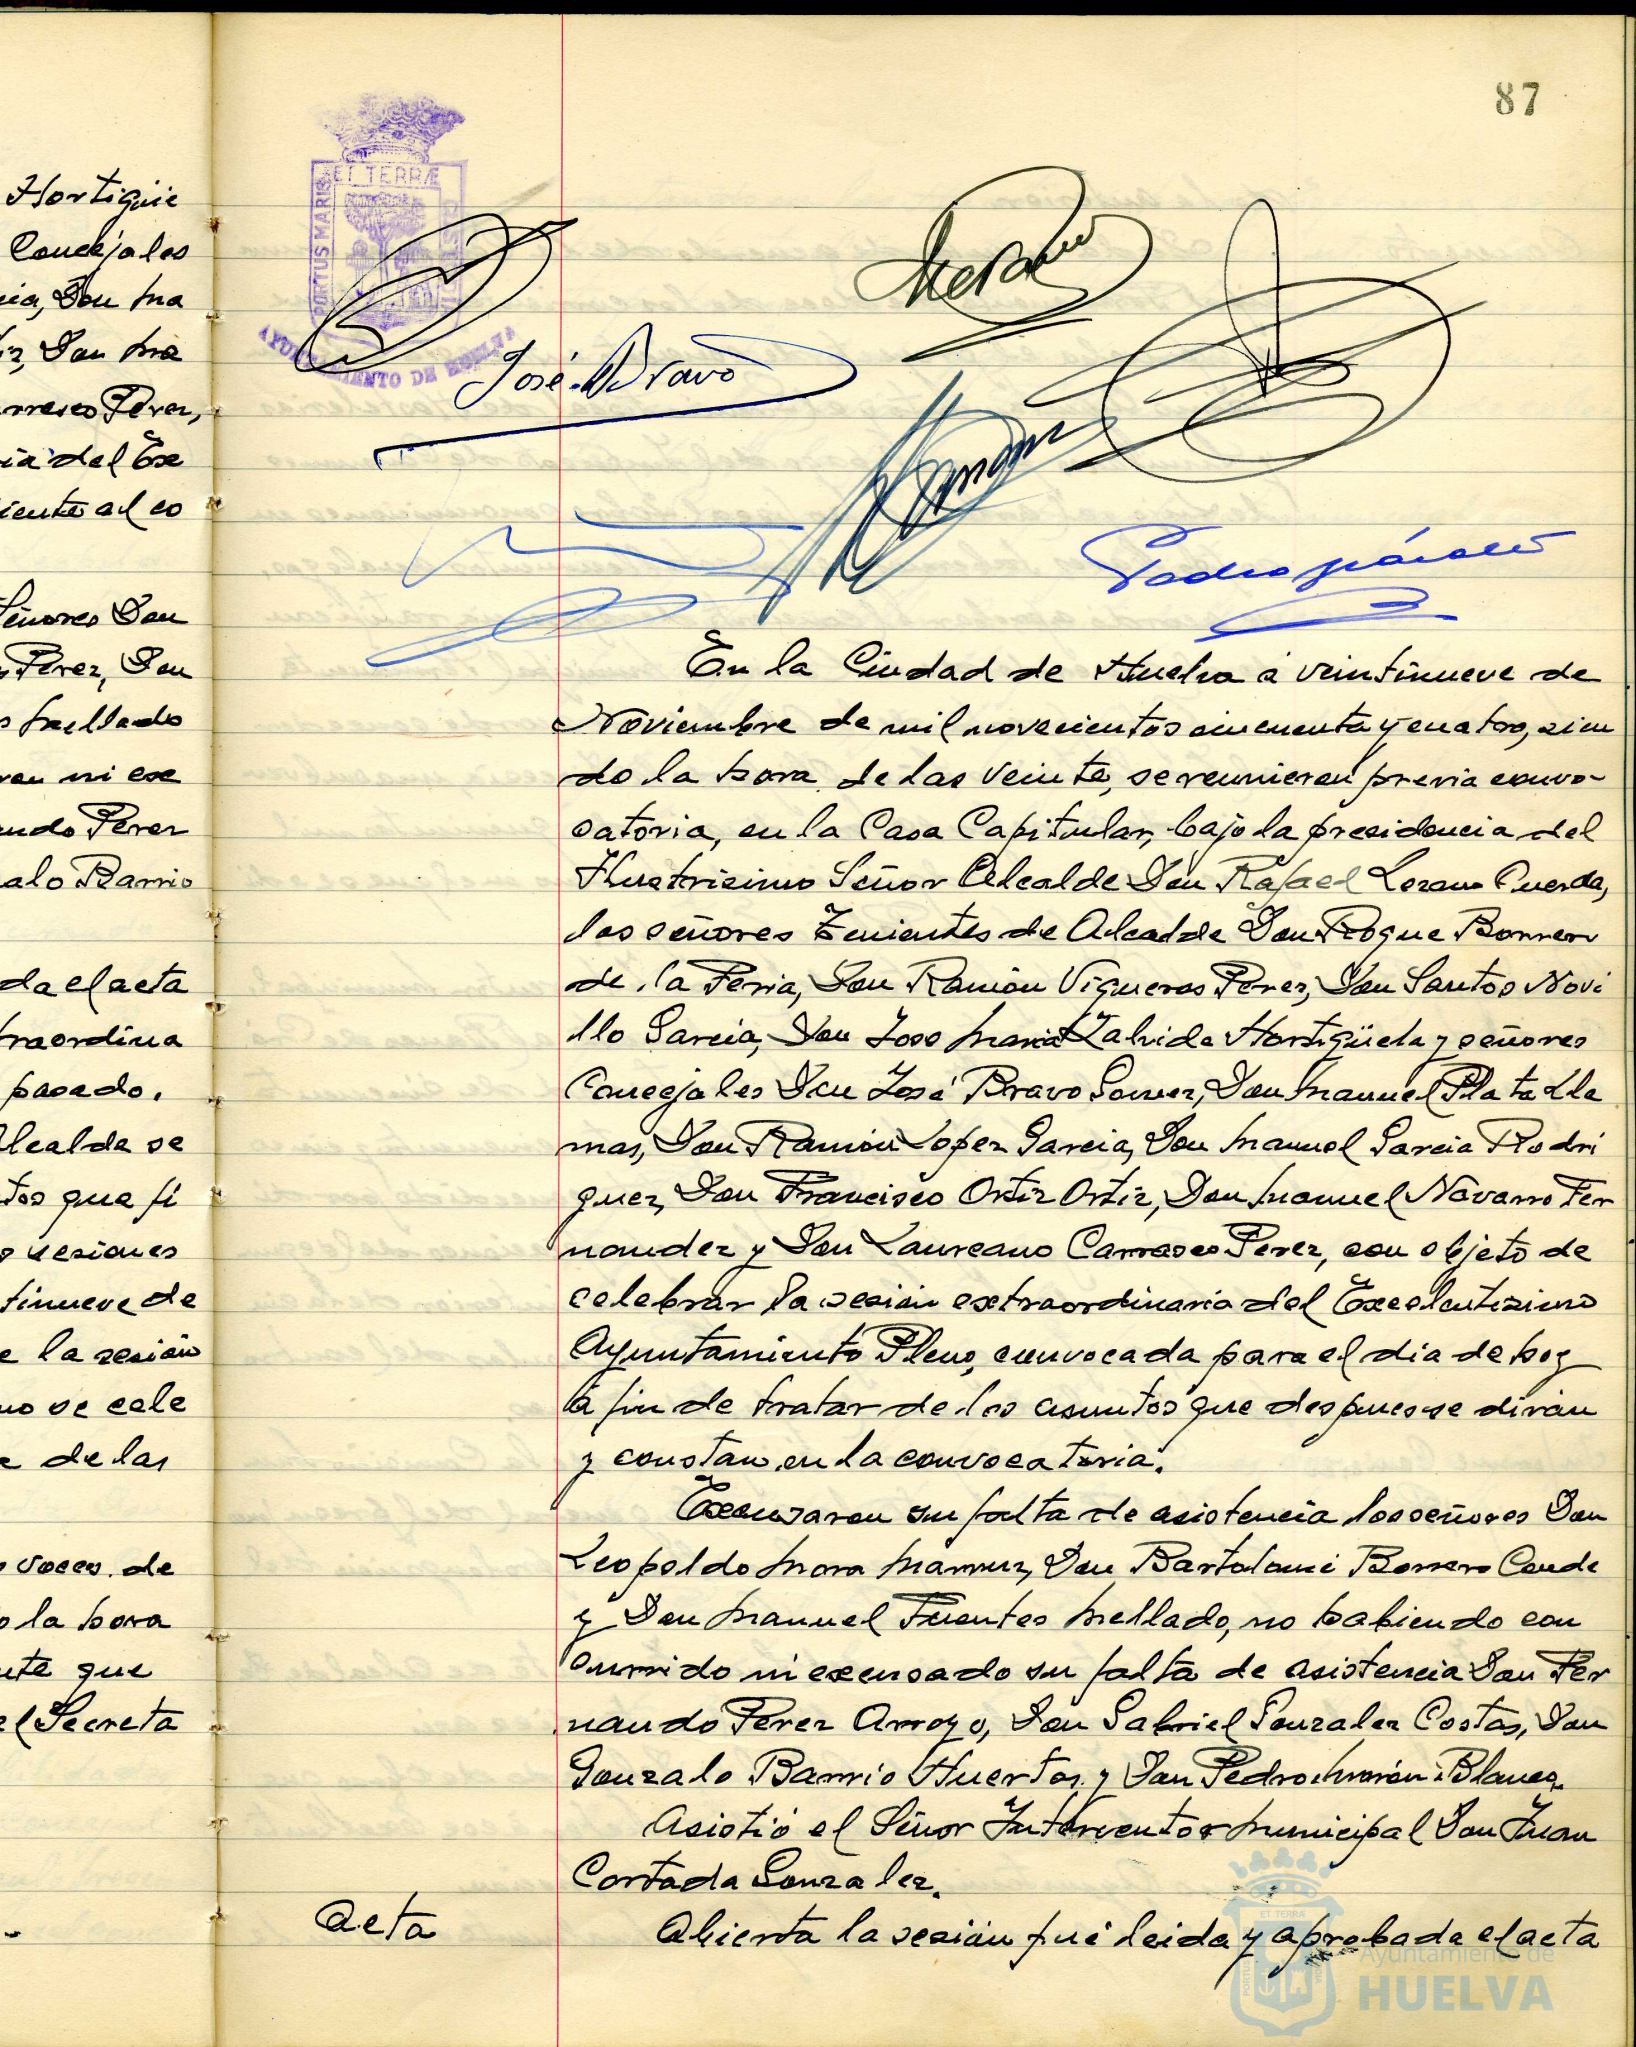 87
Hortigüe
Concejales
cia, Don Ma
iz, Don Ma
rrasco Perez,
ria del Ex
iente al co
Señores Don
s Perez, Don
s Mellado
ron ni exc
ando Perez
zalo Barrio
da el acta
traordina
pasado.
Alcalde se
tos que fi
s sesiones
tinueve de
e la sesión
no se cele
e de las
s voces de
o la hora
nte que
el Secreta
ET TERRÆ
PORTUS MARIS
AYUNTAMIENTO DE HUELVA
José Bravo
En la Ciudad de Huelva a veintinueve de
Noviembre de mil novecientos cincuenta y cuatro, sien
do la hora de las veinte, se reunieron previa convo-
catoria, en la Casa Capitular, bajo la presidencia del
Ilustrisimo Señor Alcalde Don Rafael Lozano Cuerda,
los señores Tenientes de Alcalde Don Roque Borrero
de la Feria, Don Ramón Vigueras Perez, Don Santos Novi
llo Garcia, Don Jose Maria Zalvide Hortigüela y señores
Concejales Don José Bravo Gomez, Don Manuel Plata Lla
mas, Don Ramón Lopez Garcia, Don Manuel Garcia Rodri
guez, Don Francisco Ortiz Ortiz, Don Manuel Navarro Fer
nandez y Don Laureano Carrasco Perez, con objeto de
celebrar la sesión extraordinaria del Excelentisimo
Ayuntamiento Pleno, convocada para el dia de hoy
a fin de tratar de los asuntos que despues se dirán
y constan en la convocatoria.
Excusaron su falta de asistencia los señores Don
Leopoldo Mora Don Bartolomé Borrero Conde
y Don Manuel Fuentes Mellado, no habiendo con
currido ni excusado su falta de asistencia Don Fer
nando Perez Arroyo, Don Gabriel Gonzalez Costas, Don
Gonzalo Barrio Huertos y Don Pedro Morón Blanco.
Asistió el Señor Interventor Municipal Don Juan
Cortada Gonzalez.
Acta
Abierta la sesión fué leida y aprobada el acta
Ayuntamiento de
HUELVA